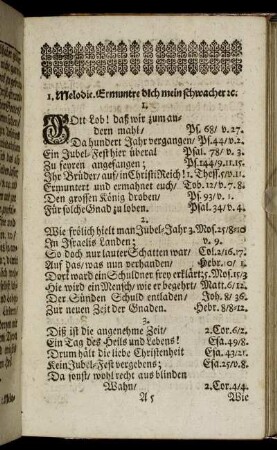 1. Melodie. Ermuntre dich mein schwacher ꝛc.
1.
GOtt Lob! daß wir zum an-
dern mahl/ Ps. 68/ v. 27.
Da hundert Jahr vergangen/ Ps. 44/ v. 2.
Ein Jubel-Fest hier überal Psal. 78/ v. 3.
Zu feyren angefangen: Ps. 144/9.11.15.
Ihr Brüder/ auf/ in Christi Reich! 1. Thess. 5/v.11.
Ermuntert und ermahnet euch/ Tob. 12/ v. 7.8.
Den grossen König droben/ Ps. 93/ v. 1.
Für solche Gnad zu loben. Psal. 34/ v. 4.
2.
Wie frölich hielt man Jubel-Jahr 3. Mos. 25/8=10
Im Israelis Landen; v. 9.
So doch nur lauter Schatten war/ Col. 2/16.17.
Auf das/ was nun verhanden/ Hebr. 10/ 1.
Dort ward ein Schuldner frey erklärt: 5. Mos. 15/3
Hie wird ein Mensch/ wie er begehrt/ Matt. 6/12.
Der Sünden Schuld entladen/ Joh. 8/ 36.
Zur neuen Zeit der Gnaden. Hebr. 8/8=12.
3.
Diß ist die angenehme Zeit/ 2. Cor. 6/2.
Ein Tag des Heils und Lebens! Esa. 49/8.
Drum hält die liebe Christenheit Esa. 43/21.
Kein Jubel-Fest vergebens; Esa. 25/ v. 8.
Da sonst/ wohl recht aus blinden
Wahn/ 2. Cor. 4/4.
A 5 Wie